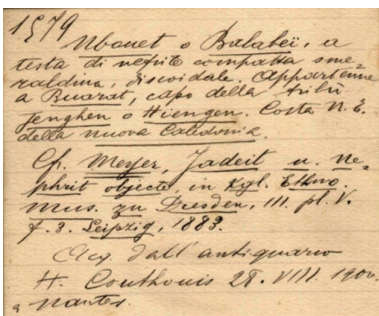 1579
Nbouet o Balabeï, a
testa di nefrite compatta sme-
raldina, discoidale. Appartenne
a Buarat, capo della tribù
Jenghen o Hiengen. Costa N. E.
della nuova Caledonia.
Cfr. Meyer, Jadeit u. Ne-
phrit objecte, in Kgl. Ethno.
mus. zu Dresden, III. pl. V.
f. 3. Leipzig, 1883.
Acq. dall'antiquario
H. Couthouis 28. VIII. 1900.
a Nantes.